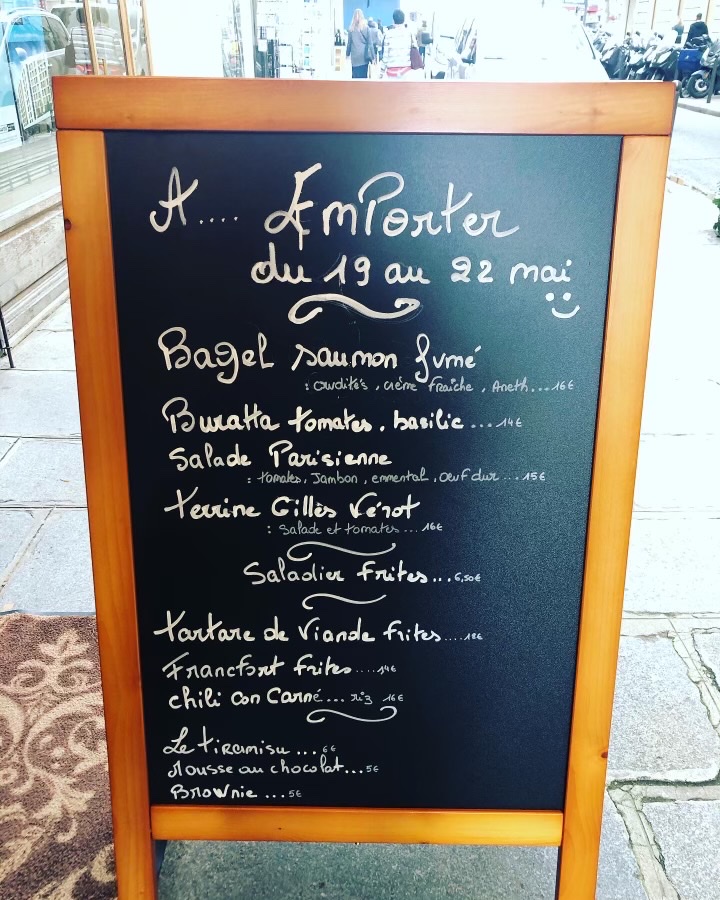 A.... EmPorter
du 19 au 22 mai
Bagel saumon fumé
: crudités, crème fraîche, Aneth...16€
Buratta tomates, basilic ...14€
Salade Parisienne
: tomates, Jambon, emmental, oeuf dur ...15€
terrine Gilles Vérot
: Salade et tomates ...16€
Saladier frites...6,50€
tartare de Viande frites....18€
Francfort frites ....14€
chili con Carné... riz 16€
Le tiramisu ...6€
Mousse au chocolat...5€
Brownie ...5€